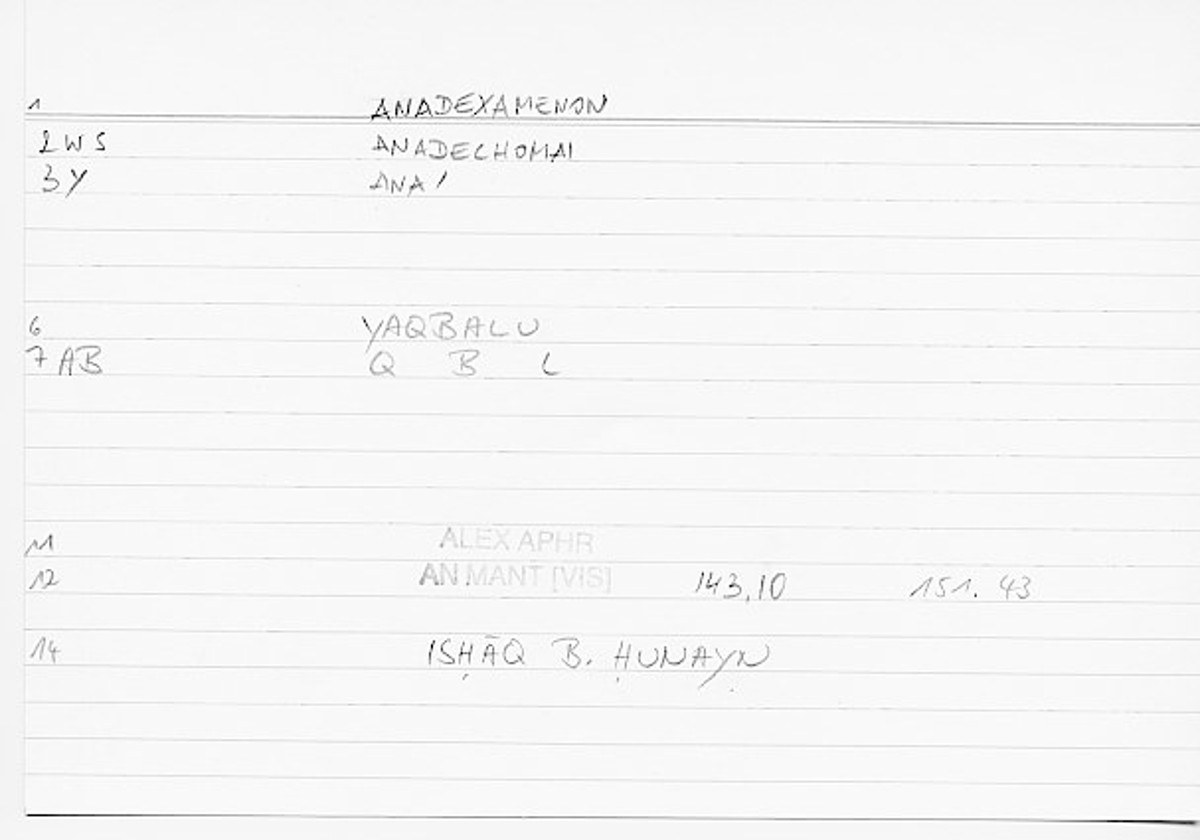 1 ANADEXAMENON
2 WS ANADECHOMAI
3 Y ANA/
6 YAQBALU
7 AB Q B L
11 ALEX APHR
12 AN MANT [VIS] 143,10 151. 43
14 ISḤĀQ B. ḤUNAYN